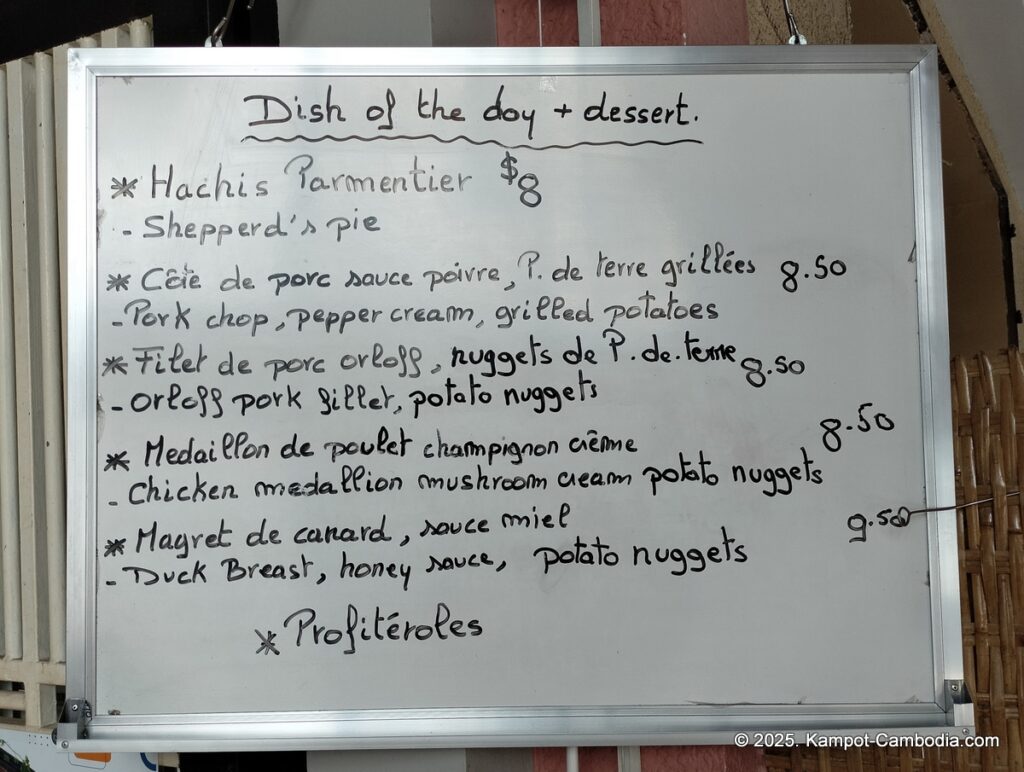 Dish of the day + dessert.
* Hachis Parmentier $8
- Shepperd's pie
* Côte de porc sauce poivre, P. de terre grillées 8.50
- Pork chop, pepper cream, grilled potatoes
* Filet de porc orloff, nuggets de P. de. terre 8.50
- Orloff pork fillet, potato nuggets
* Medaillon de poulet champignon crème 8.50
- Chicken medallion mushroom cream potato nuggets
* Magret de canard, sauce miel 9.50
- Duck Breast, honey sauce, potato nuggets
* Profitéroles
© 2025. Kampot-Cambodia.com